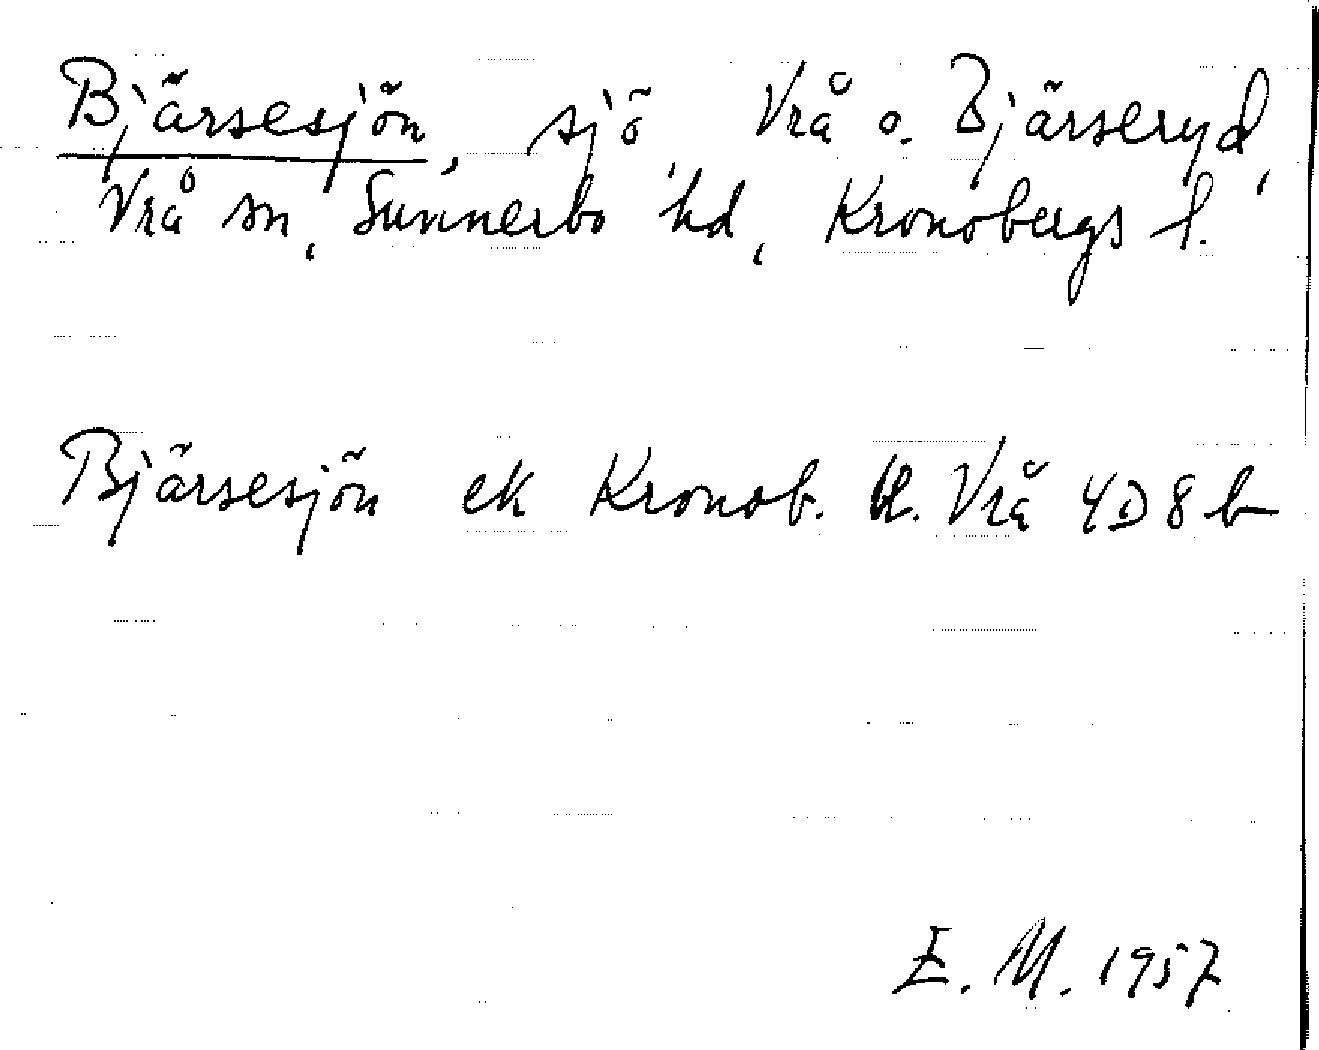 Bjärsesjön, sjö, Vrå o. Bjärseryd,
Vrå sn, Sunnerbo hd, Kronobergs l.
Bjärsesjön ek Kronob. l. Vrå 4D8b
E. M. 1957